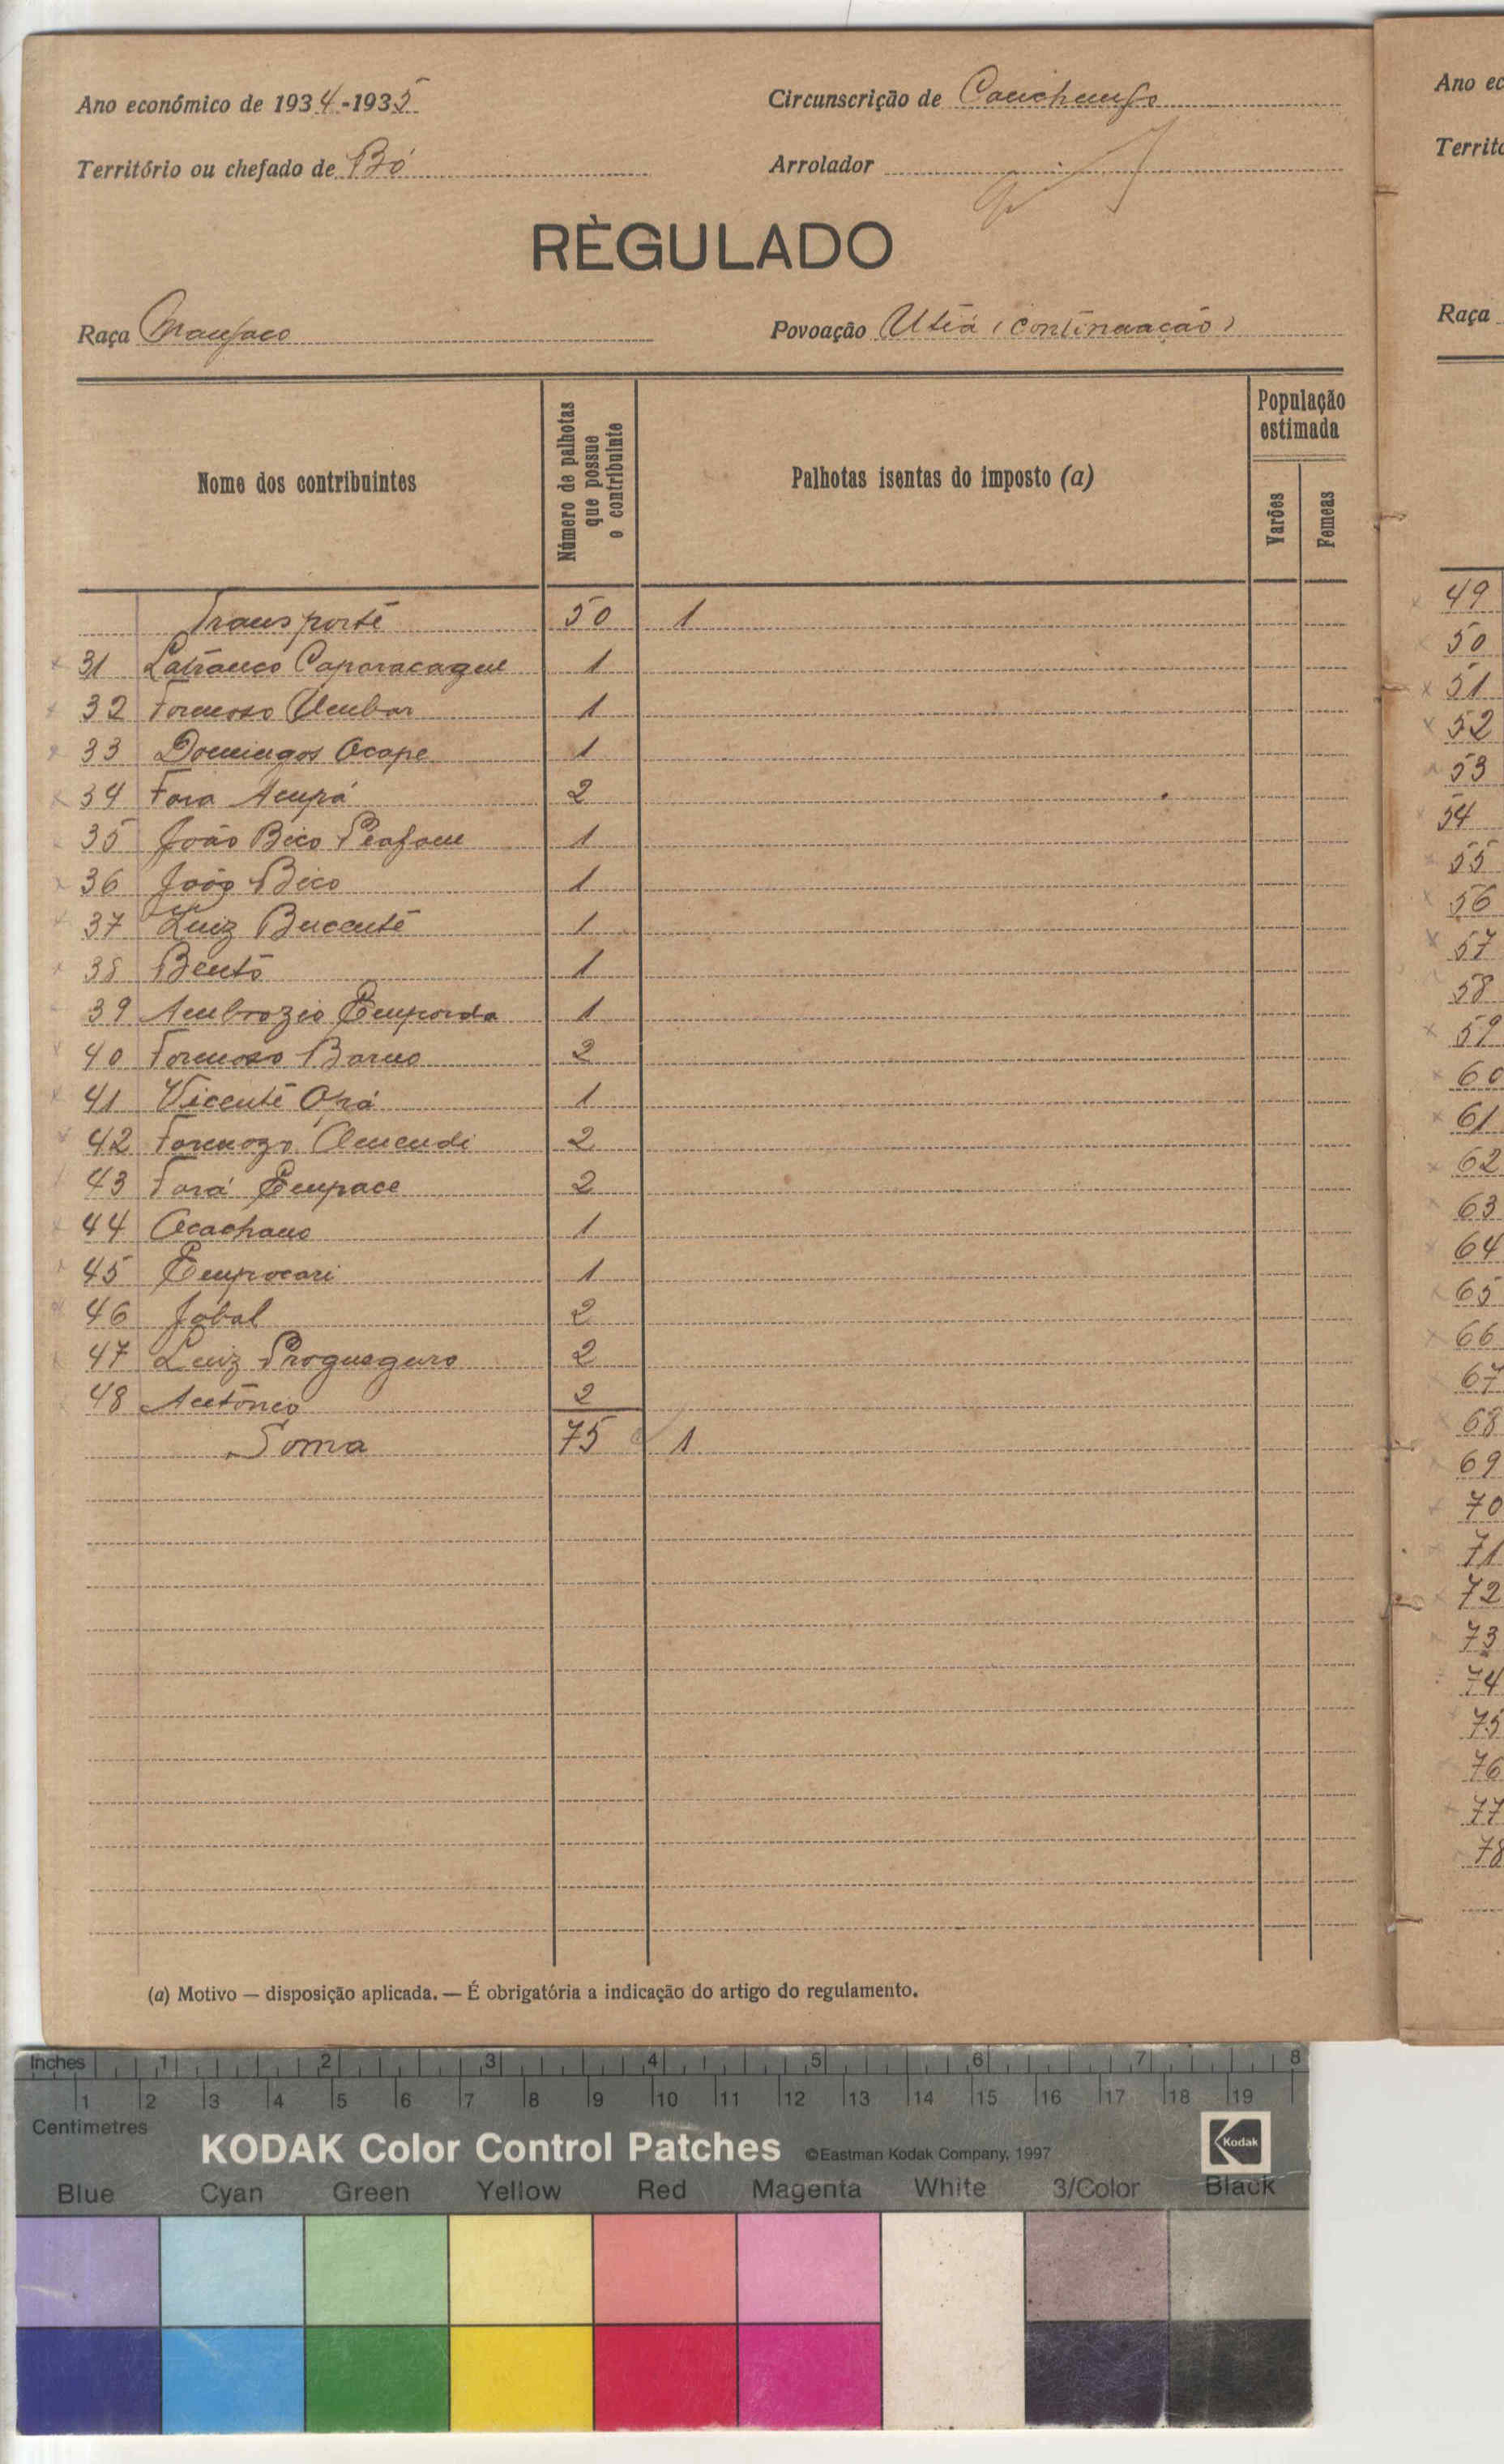 Ano económico de 1934-1935
Circunscrição de Canchungo
Território ou chefado de Bó
Arrolador
RÈGULADO
Raça Manjaco
Povoação Utiá (continuação)
Nome dos contribuintes
Número de palhotas que possue o contribuinte
Palhotas isentas do imposto (a)
População estimada
Varões
Femeas
Transporte 50 1
31 Caparacague 1
32 Formoso 1
33 Domingos Ocape 1
34 Fora Acupá 2
35 João Bico 1
36 João Bico 1
37 Luiz 1
38 Bento 1
39 Ambrozio Emporda 1
40 Formoso 2
41 Vicente Opá 1
42 Formozo 2
43 Fará Empace 2
44 1
45 Empocari 1
46 Jobal 2
47 Luiz 2
48 Antonio 2
Soma 75 1
(a) Motivo — disposição aplicada. — É obrigatória a indicação do artigo do regulamento.
Ano ec
Territó
Raça
49
50
51
52
53
54
55
56
57
58
59
60
61
62
63
64
65
66
67
68
69
70
71
72
73
74
75
76
77
78
Inches 1 2 3 4 5 6 7 8
1 2 3 4 5 6 7 8 9 10 11 12 13 14 15 16 17 18 19
Centimetres
KODAK Color Control Patches ©Eastman Kodak Company, 1997 Kodak
Blue Cyan Green Yellow Red Magenta White 3/Color Black